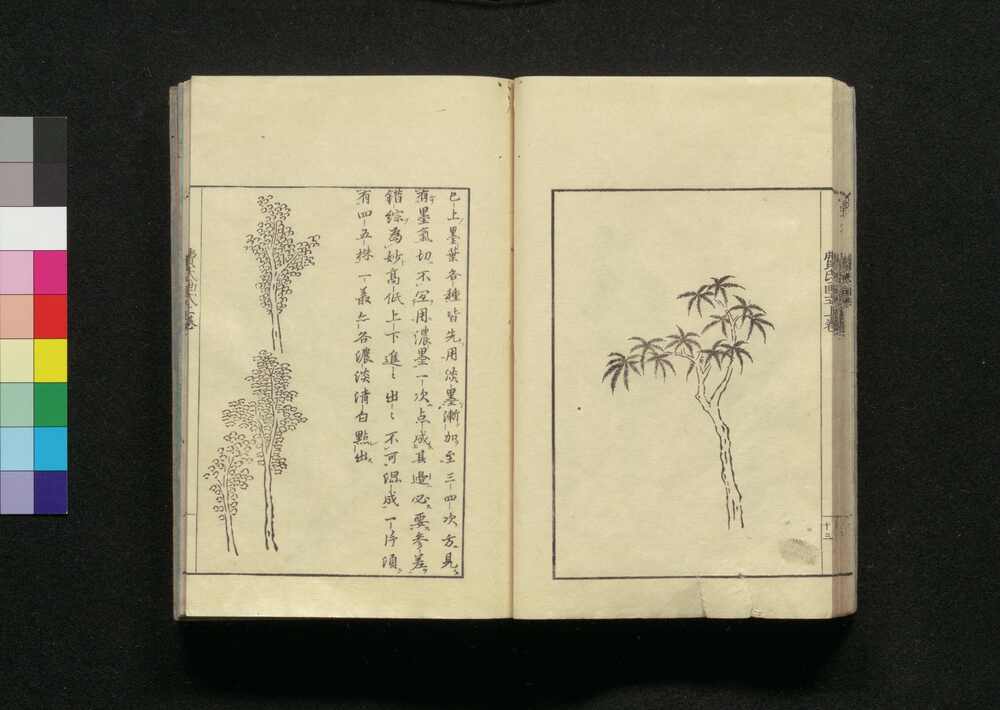 已上墨葉各種皆先用淡墨漸加至三四次方見
有墨氣切不宜用濃墨一次点成其邊必要参差
錯綜為妙高低上下進〻出〻不可混成一片須
有四五株一叢亦各濃淡清白點出
十三